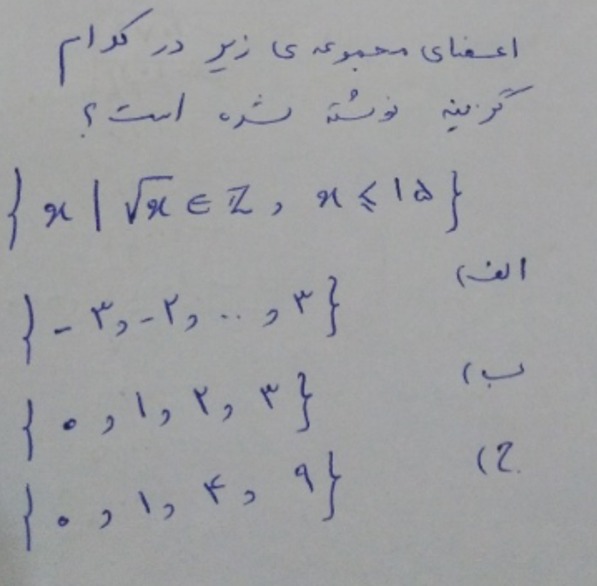 اعضای مجموعه ی زیر در کدام
گزینه نوشته شده است؟
{ x | √x ∈ ℤ , x ⩽ ۱۵ }
الف) { -۳, -۲, .. , ۳ }
ب) { ۰ , ۱ , ۲ , ۳ }
ج) { ۰ , ۱ , ۴ , ۹ }